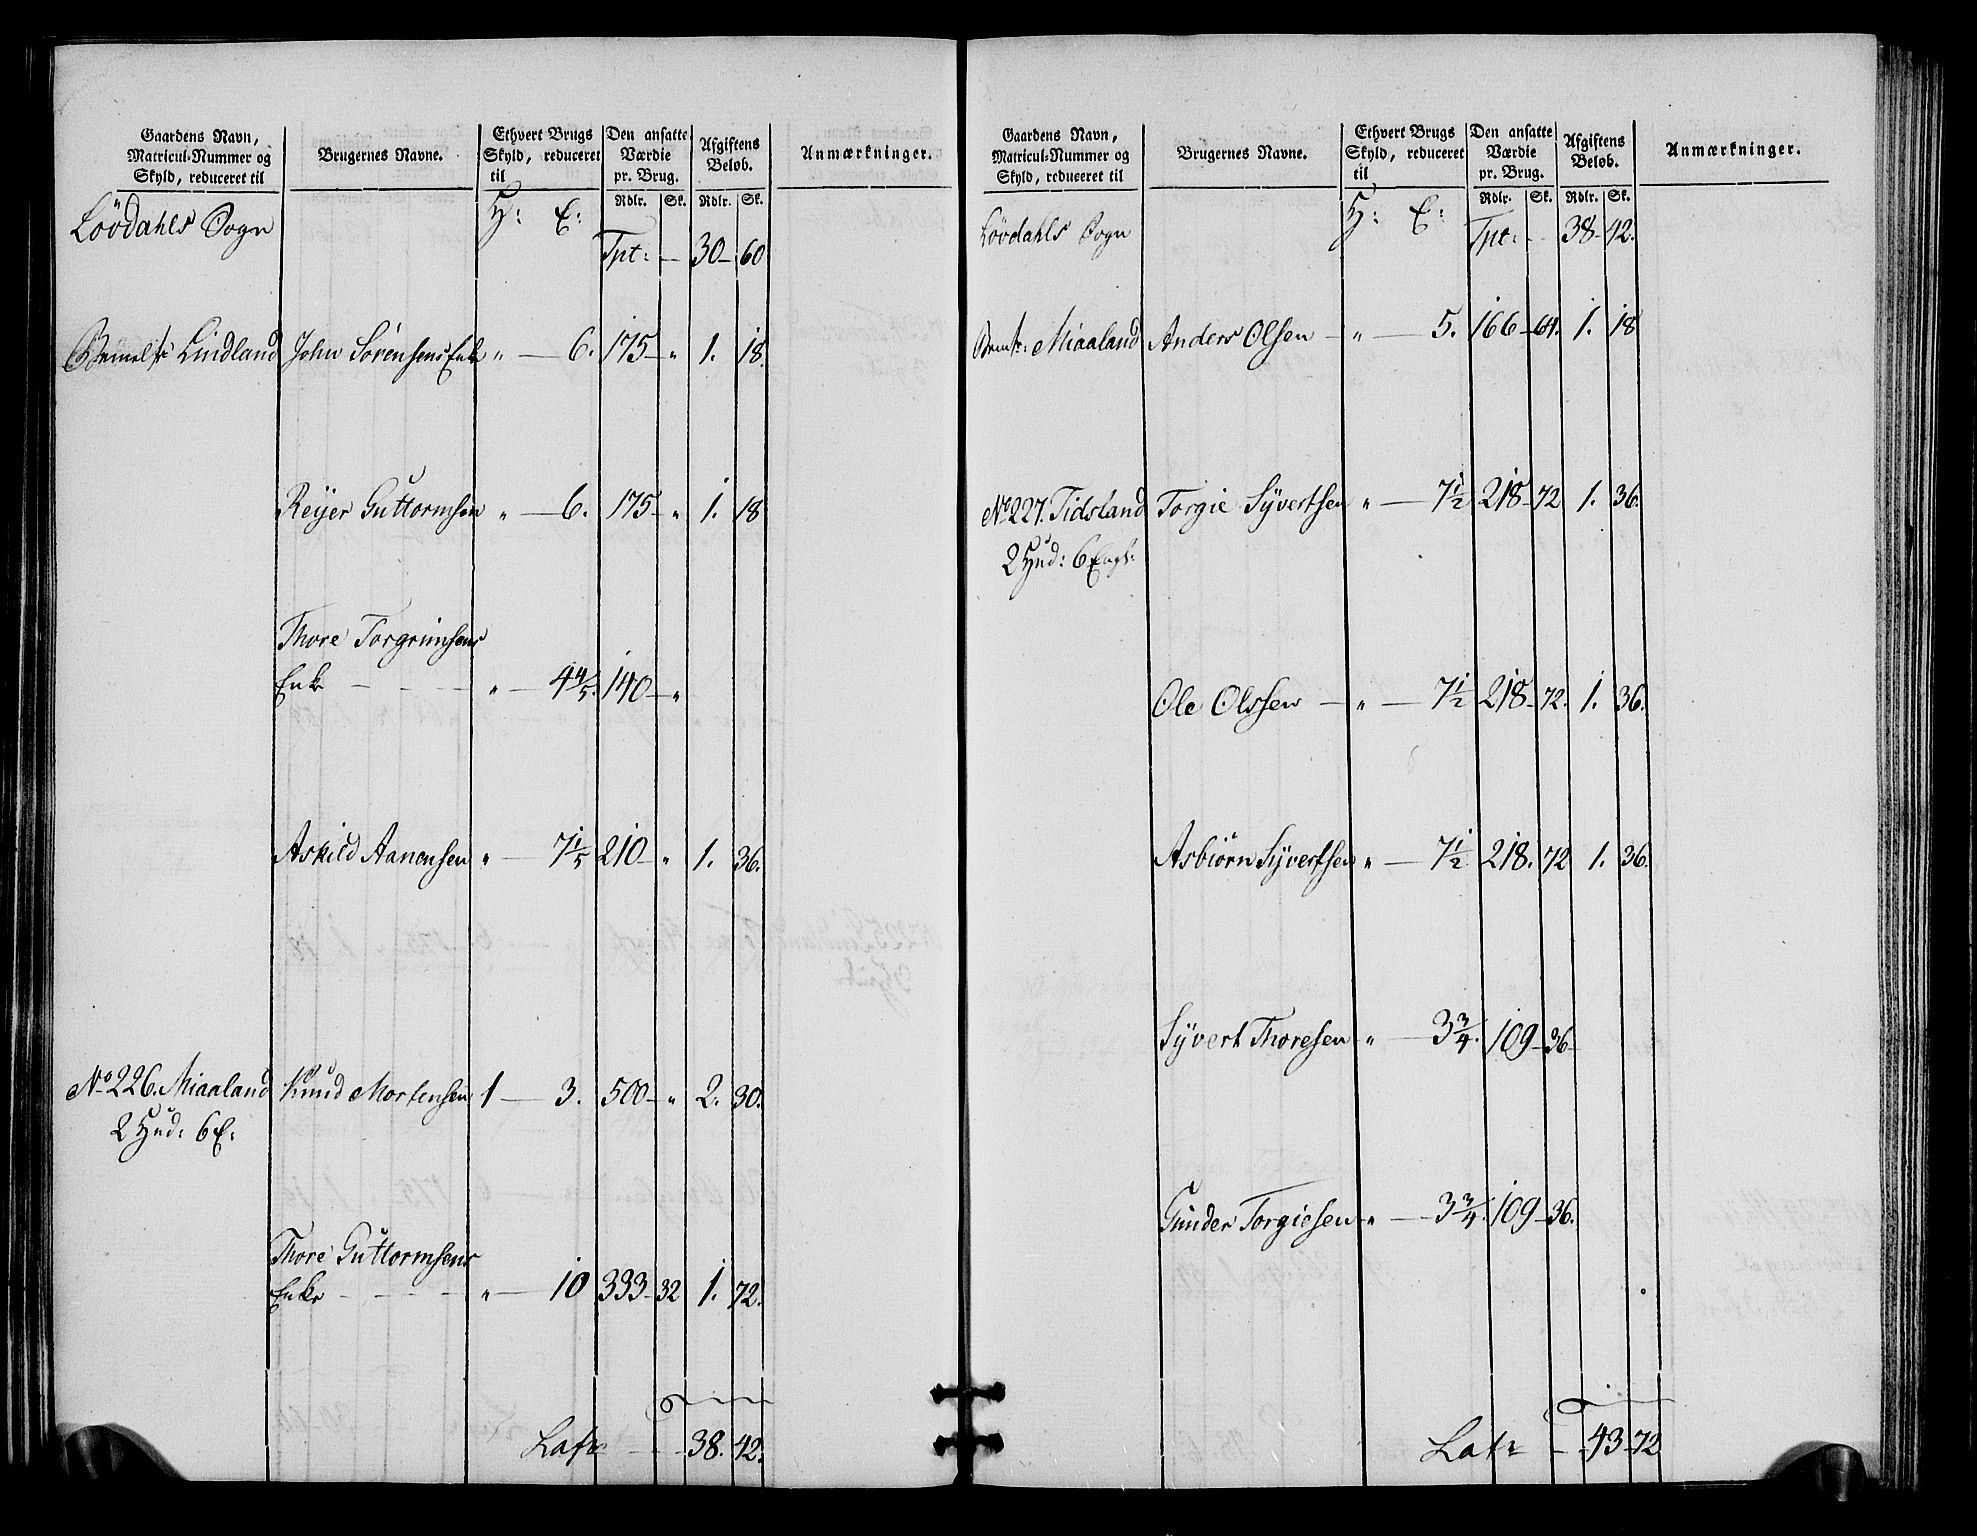 Gaardens Navn, Matricul-Nummer og Skyld, reduceret til | Brugernes Navne. | Ethvert Brugs Skyld, reduceret til | Den ansatte Værdie pr. Brug. | Afgiftens Beløb. | Anmærkninger.
Rdlr. Sk. Rdlr. Sk.
Lövdahls Sogn H: E:
Tpt: — 30 — 60
Lindland John Sörensens Enke " — 6. 175 — " 1. 18.
Reijer Guttormsen " — 6. 175 — " 1. 18
Thore Torgrimsens
Enke — — — " — 4 4/5. 140 — "
Askild Aanensen " — 7 1/5 210 — " 1. 36.
No 226. Miaaland Knud Mortensen 1 — 3. 500 — " 2. 30.
2 Hud: 6 E:
Thore Guttormsens
Enke — — — " — 10 333 — 32 1. 72.
Lats — — 38. 42.
Gaardens Navn, Matricul-Nummer og Skyld, reduceret til | Brugernes Navne. | Ethvert Brugs Skyld, reduceret til | Den ansatte Værdie pr. Brug. | Afgiftens Beløb. | Anmærkninger.
Rdlr. Sk. Rdlr. Sk.
Lövdahls Sogn H: E:
Tpt: — 38 — 42.
Miaaland Anders Olsen — " — 5. 166 — 64. 1. 18
No 227. Tidsland Torgie Syvertsen " — 7 1/2 218 — 72 1. 36.
2 Hud: 6 Eng:
Ole Olssen — " — 7 1/2 218 — 72. 1. 36.
Asbiörn Syvertsen " — 7 1/2 218. 72 1. 36.
Syvert Thoresen " — 3 3/4. 109 — 36 —
Gunder Torgiesen " — 3 3/4. 109 — 36.
Lats — — 43 — 72